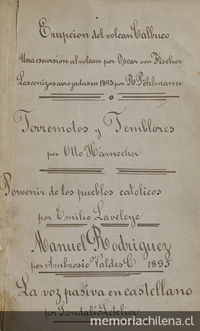 Erupcion del volcan Calbuco
Una escursion al volcan por Oscar von Fischer
Las cenizas arrojadas en 1893 por R. Pöhlmann
Terremotos y Temblores
por Otto Harnecker
Porvenir de los pueblos catolicos
por Emilio Laveleye
Manuel Rodriguez
por Ambrosio Valdes C 1895
La voz pasiva en castellano
por Sandalio Letelier
memoriachilena.cl